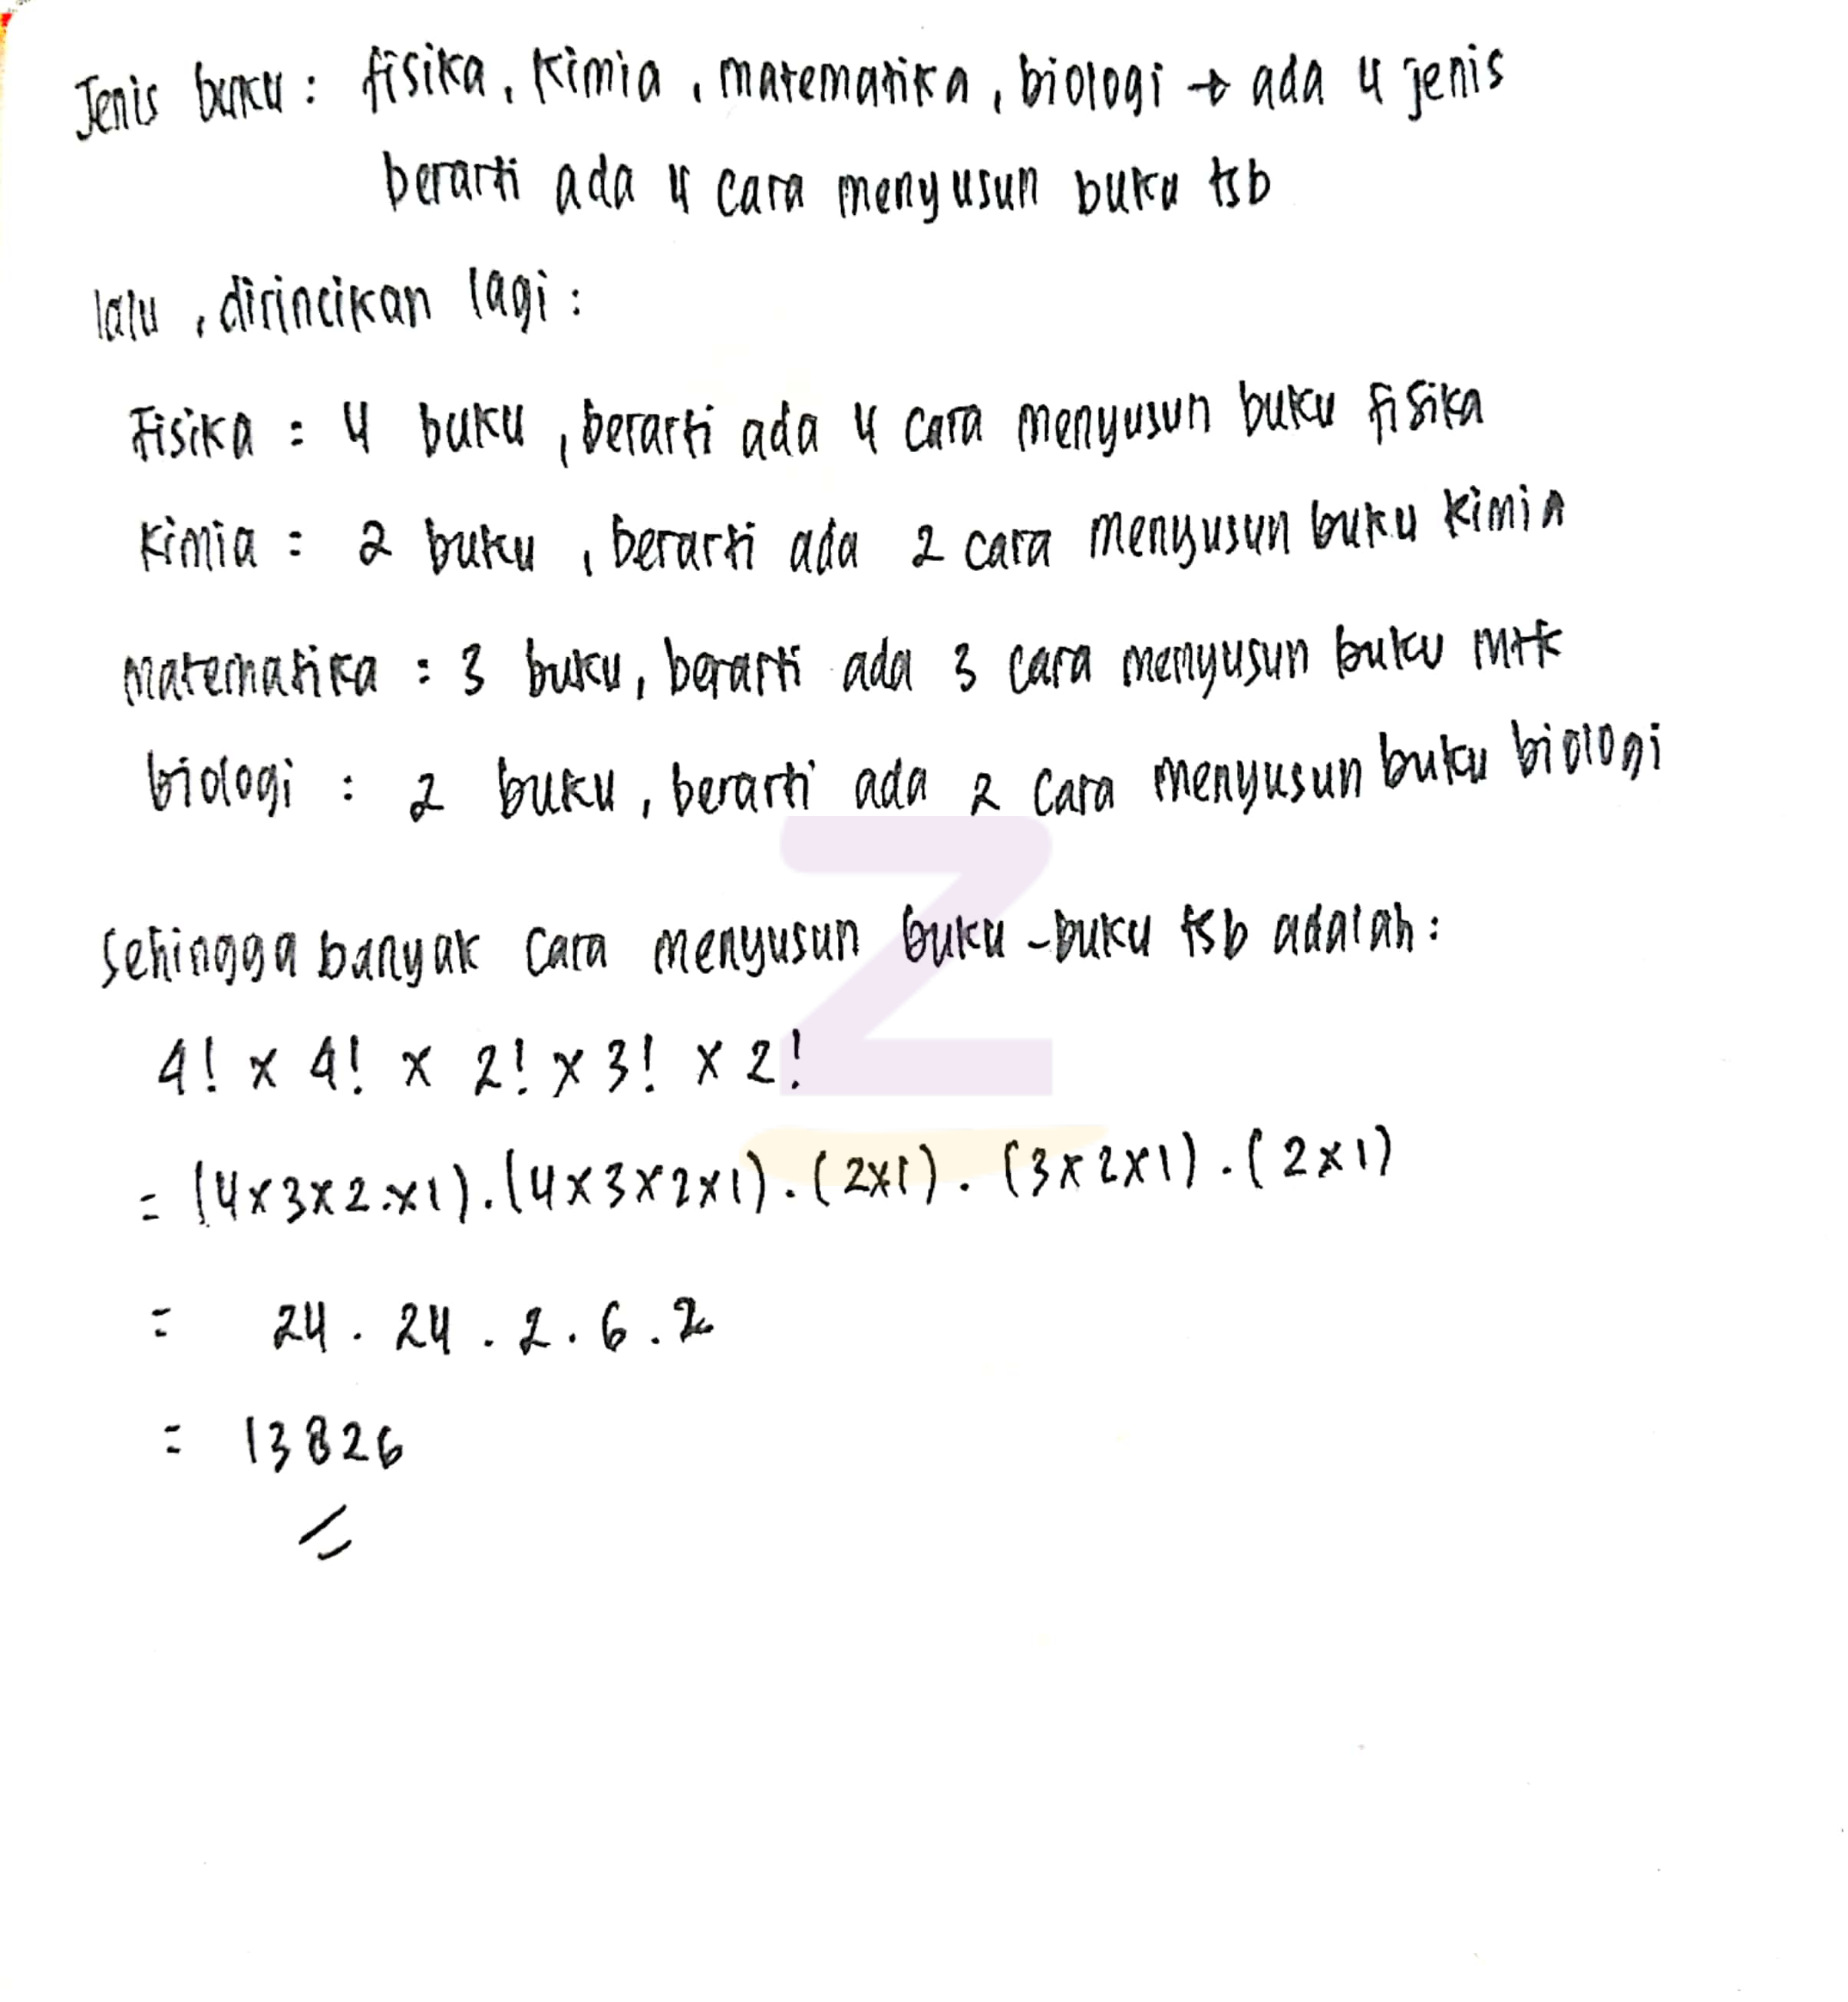 Jenis buku : fisika, kimia, matematika, biologi → ada 4 jenis
berarti ada 4 cara menyusun buku tsb
lalu, dirincikan lagi :
Fisika = 4 buku, berarti ada 4 cara menyusun buku fisika
Kimia = 2 buku, berarti ada 2 cara menyusun buku kimia
matematika : 3 buku, berarti ada 3 cara menyusun buku mtk
biologi : 2 buku, berarti ada 2 cara menyusun buku biologi
Sehingga banyak cara menyusun buku-buku tsb adalah :
4! x 4! x 2! x 3! x 2!
= (4x3x2x1).(4x3x2x1).(2x1).(3x2x1).(2x1)
= 24 . 24 . 2 . 6 . 2
= 13826